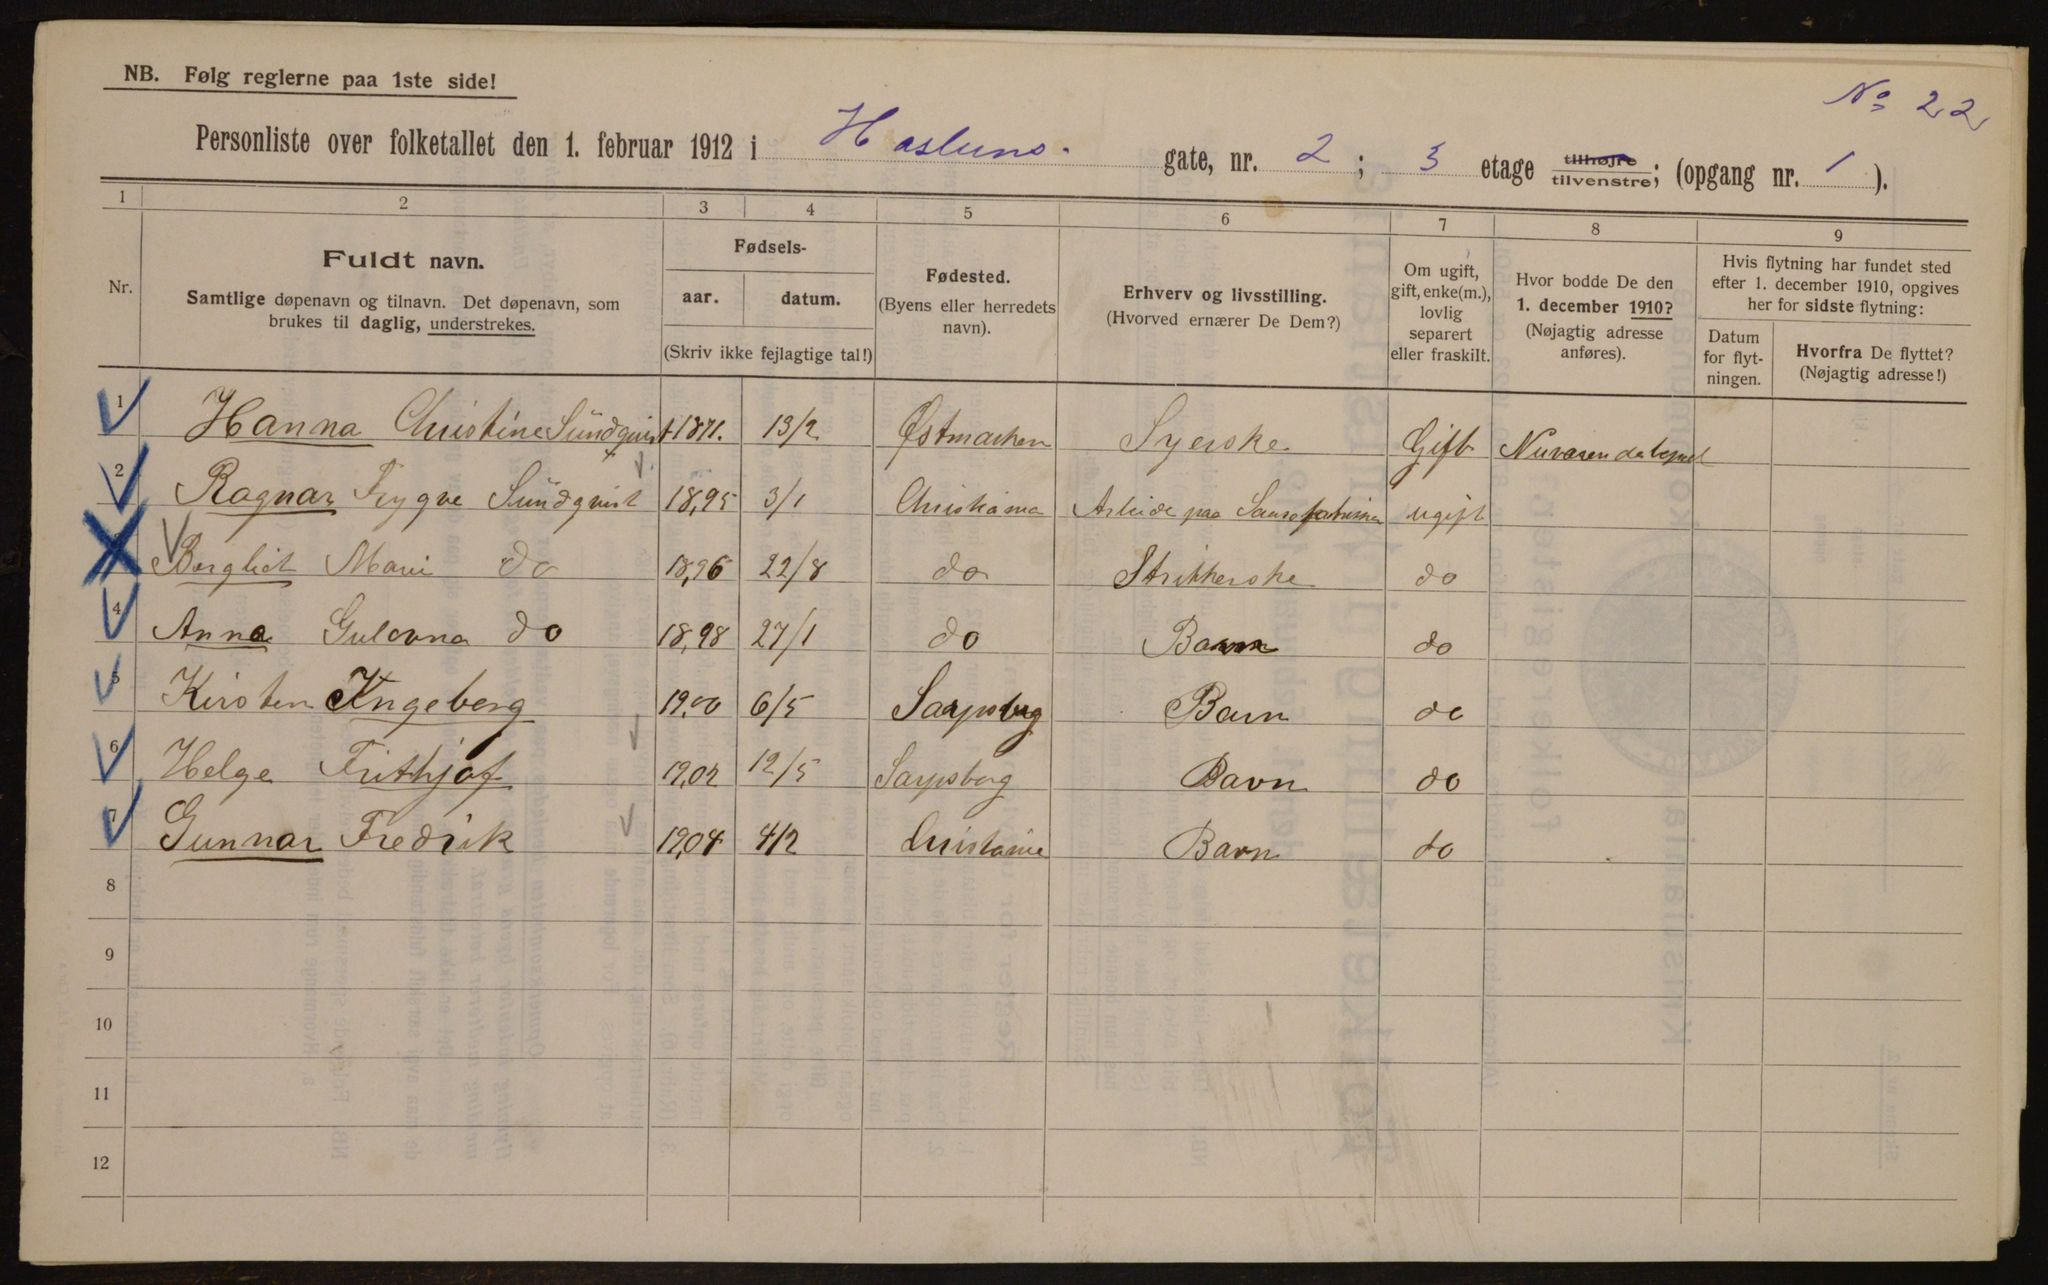 No 22
NB. Følg reglerne paa 1ste side!
Personliste over folketallet den 1. februar 1912 i Hasluns. gate, nr. 2 ; 3 etage tilhøjre tilvenstre; (opgang nr. 1 ).
1 2 3 4 5 6 7 8 9
Nr.
Fuldt navn.
Samtlige døpenavn og tilnavn. Det døpenavn, som
brukes til daglig, understrekes.
Fødsels-
aar. datum.
(Skriv ikke fejlagtige tal!)
Fødested.
(Byens eller herredets
navn).
Erhverv og livsstilling.
(Hvorved ernærer De Dem?)
Om ugift,
gift, enke(m.),
lovlig
separert
eller fraskilt.
Hvor bodde De den
1. december 1910?
(Nøjagtig adresse
anføres).
Hvis flytning har fundet sted
efter 1. december 1910, opgives
her for sidste flytning:
Datum
for flyt-
ningen.
Hvorfra De flyttet?
(Nøjagtig adresse!)
1 Hanna Christine Sündqvist 1871. 13/2 Østmarken Syerske Gift
2 Ragnar Trygve Sündqvist 18,95 3/1 Christiania Arbeide paa ugift
Borgliot Marie do 18,96 22/8 do Strikkerske do
4 Anna do 18,98 27/1 do Barn do
5 Kirsten Ingeberg 19,00 6/5 Sarpsborg Barn do
6 Helge Frithjof 19,02 12/5 Sarpsborg Barn do
7 Gunnar Fredrik 19,04 4/2 Christania Barn do
8
9
10
11
12